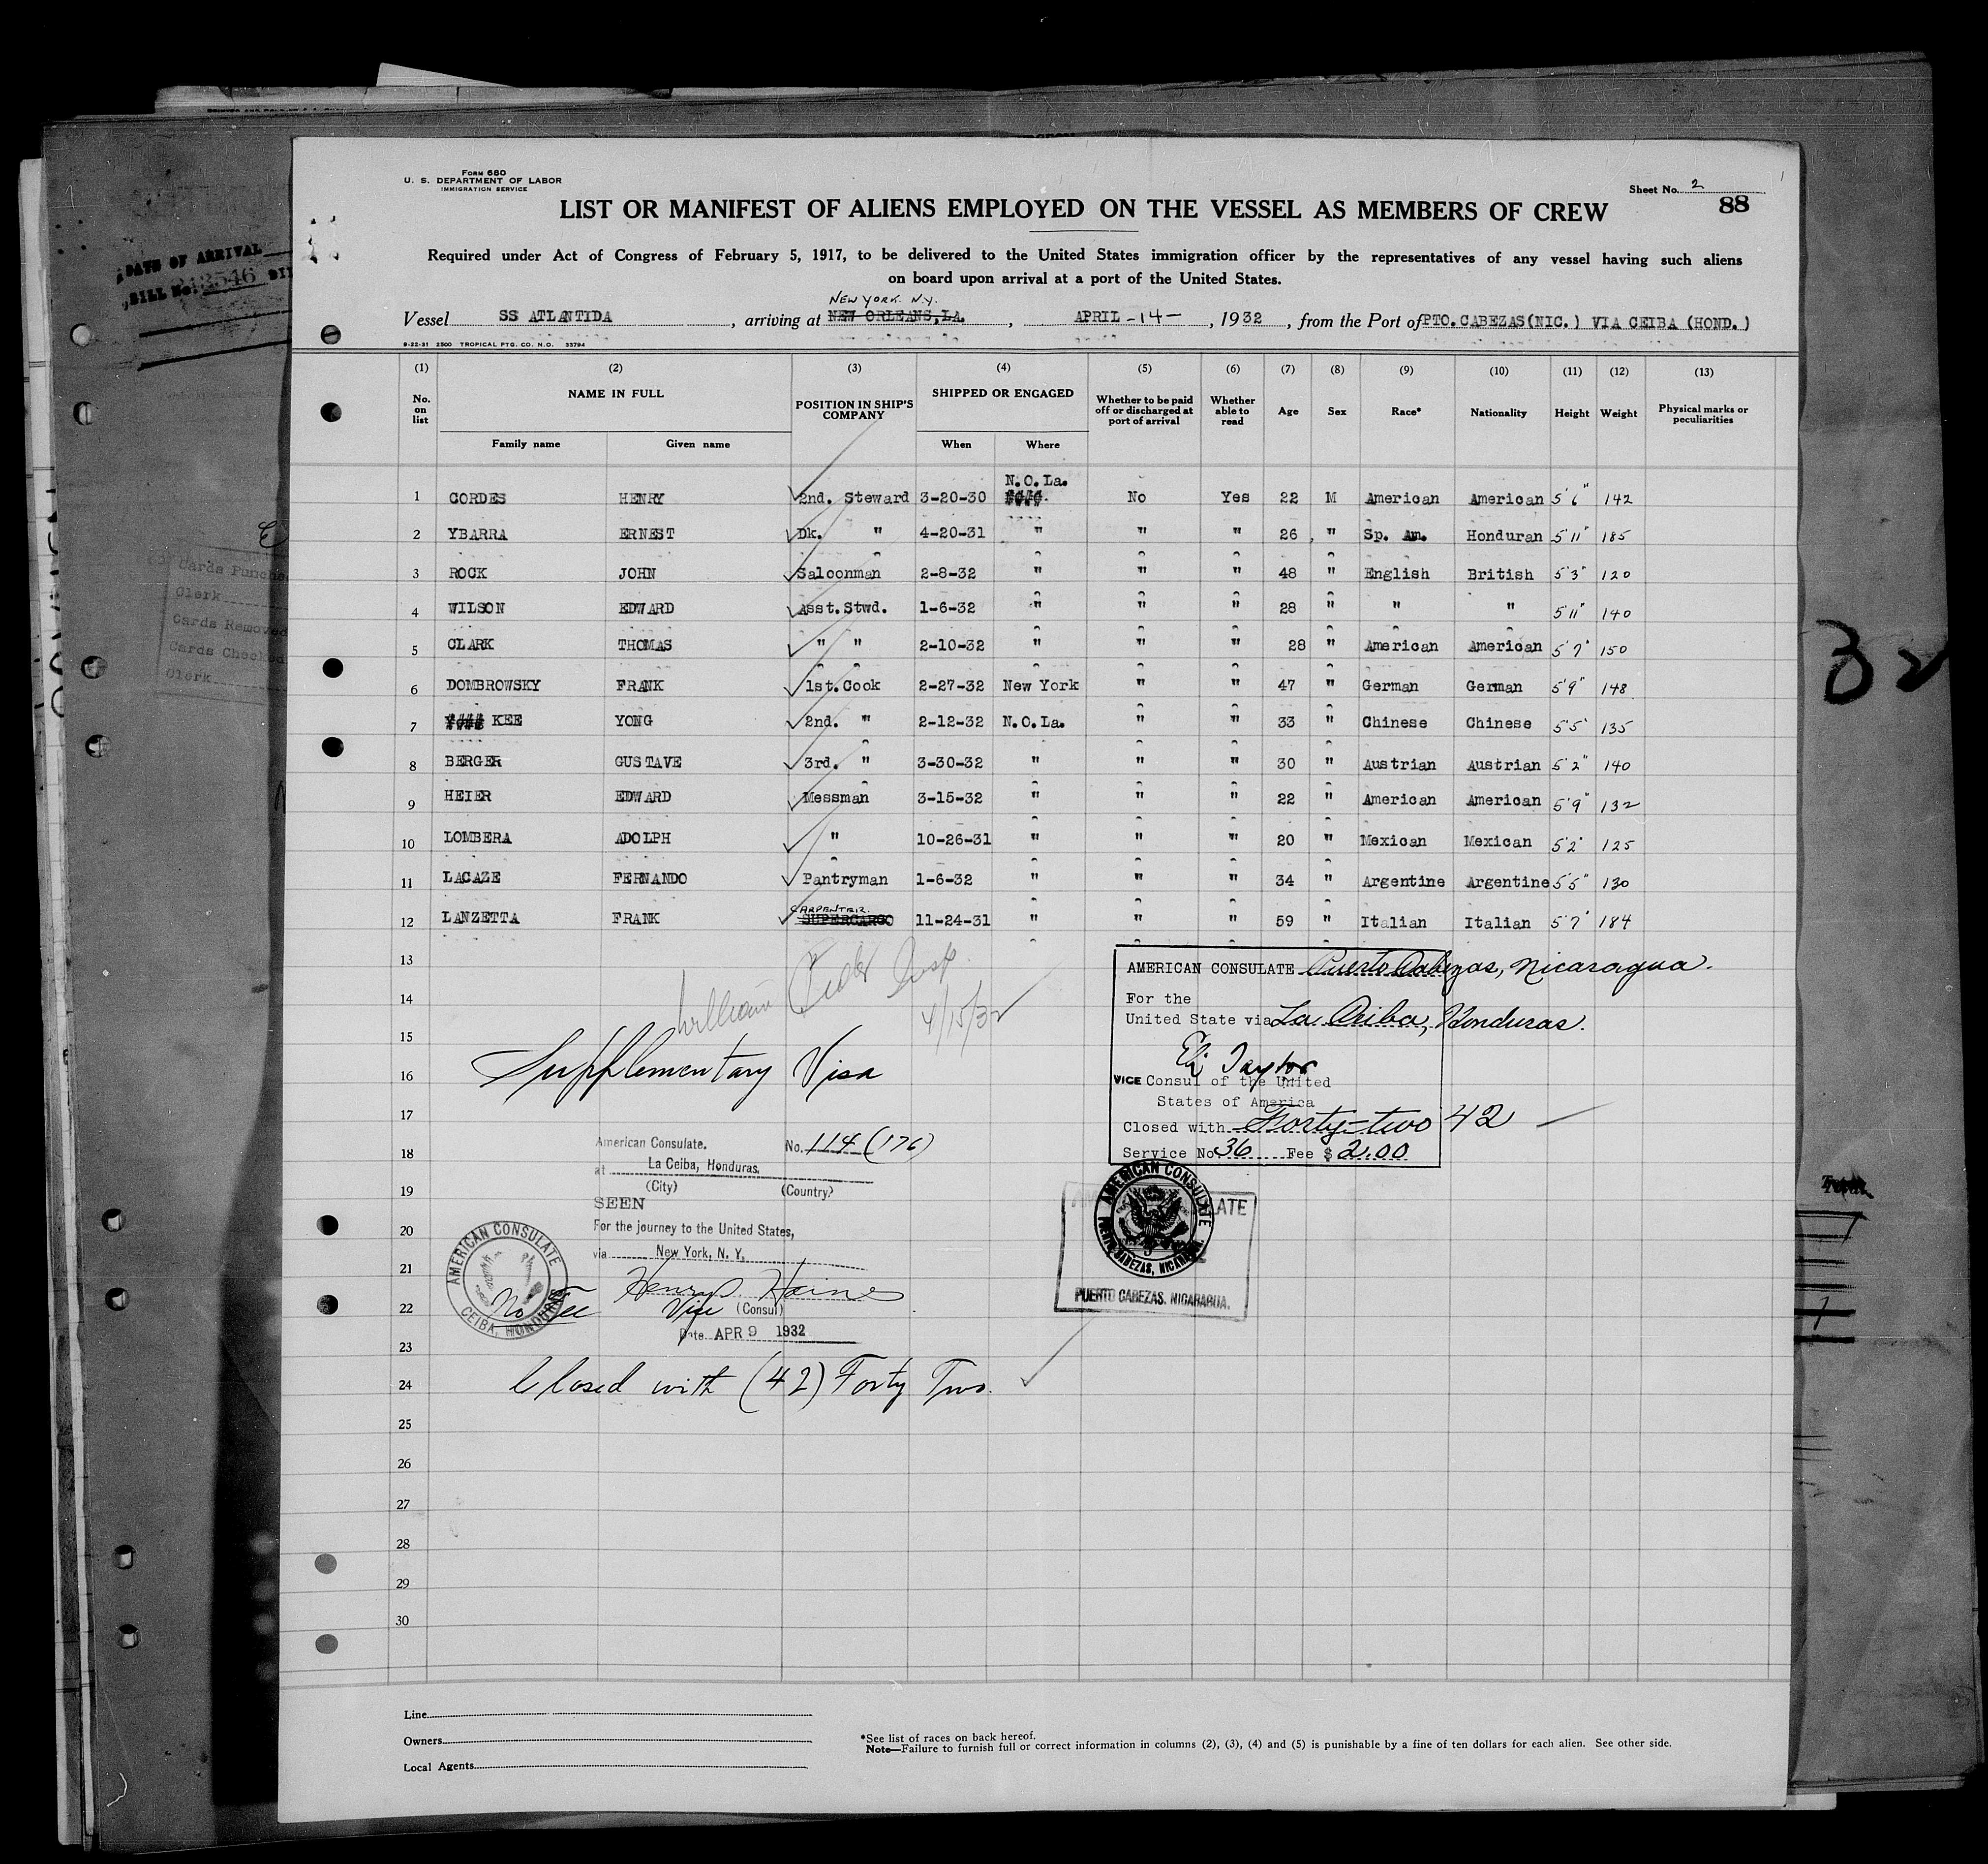 FORM 680
U. S. DEPARTMENT OF LABOR
IMMIGRATION SERVICE
Sheet No. 2
88
LIST OR MANIFEST OF ALIENS EMPLOYED ON THE VESSEL AS MEMBERS OF CREW
Required under Act of Congress of February 5, 1917, to be delivered to the United States immigration officer by the representatives of any vessel having such aliens
on board upon arrival at a port of the United States.
NEW YORK. N.Y.
Vessel SS ATLANTIDA, arriving at NEW ORLEANS, LA., APRIL -14-, 1932, from the Port of PTO. CABEZAS(NIC.) VIA CEIBA (HOND.)
9-22-31 2500 TROPICAL PTG. CO. N.O. 33794
(1) (2) (3) (4) (5) (6) (7) (8) (9) (10) (11) (12) (13)
No. on list NAME IN FULL POSITION IN SHIP'S COMPANY SHIPPED OR ENGAGED Whether to be paid off or discharged at port of arrival Whether able to read Age Sex Race* Nationality Height Weight Physical marks or peculiarities
Family name Given name When Where
N.O.La.
1 CORDES HENRY 2nd. Steward 3-20-30 No Yes 22 M American American 5'6" 142
2 YBARRA ERNEST Dk. " 4-20-31 " " " 26 " Sp. Am. Honduran 5'11" 185
3 ROCK JOHN Saloonman 2-8-32 " " " 48 " English British 5'3" 120
4 WILSON EDWARD Asst.Stwd. 1-6-32 " " " 28 " " " 5'11" 140
5 CLARK THOMAS " " 2-10-32 " " " 28 " American American 5'7" 150
6 DOMBROWSKY FRANK 1st.Cook 2-27-32 New York " " 47 " German German 5'9" 148
7 KEE YONG 2nd. " 2-12-32 N.O.La. " " 33 " Chinese Chinese 5'5" 135
8 BERGER GUSTAVE 3rd. " 3-30-32 " " " 30 " Austrian Austrian 5'2" 140
9 HEIER EDWARD Messman 3-15-32 " " " 22 " American American 5'9" 132
10 LOMBERA ADOLPH " 10-26-31 " " " 20 " Mexican Mexican 5'2" 125
11 LACAZE FERNANDO Pantryman 1-6-32 " " " 34 " Argentine Argentine 5'5" 130
CARPENTER.
12 LANZETTA FRANK SUPERCARGO 11-24-31 " " " 59 " Italian Italian 5'7" 184
13
14
15
16
17
18
19
20
21
22
23
24
25
26
27
28
29
30
William Insp.
4/15/32
Supplementary Visa
AMERICAN CONSULATE Puerto Cabezas, Nicaragua.
For the
United State via La Ceiba, Honduras.
Eli Taylor
VICE Consul of the United
States of America
Closed with Forty-two 42
Service No. 36 Fee $ 2.00
American Consulate. No. 114 (176)
at La Ceiba, Honduras.
(City) (Country)
SEEN
For the journey to the United States,
via New York, N. Y.
Henry Haines
Vice (Consul)
Date APR 9 1932
AMERICAN CONSULATE
CEIBA, HONDURAS
No Fee
AMERICAN CONSULATE
PUERTO CABEZAS, NICARAGUA.
PUERTO CABEZAS, NICARAGUA.
Closed with (42) Forty Two.
Line
Owners
Local Agents
*See list of races on back hereof.
Note—Failure to furnish full or correct information in columns (2), (3), (4) and (5) is punishable by a fine of ten dollars for each alien. See other side.
DATE OF ARRIVAL
BILL No.
Cards Punched
Clerk
Cards Removed
Cards Checked
Clerk
32